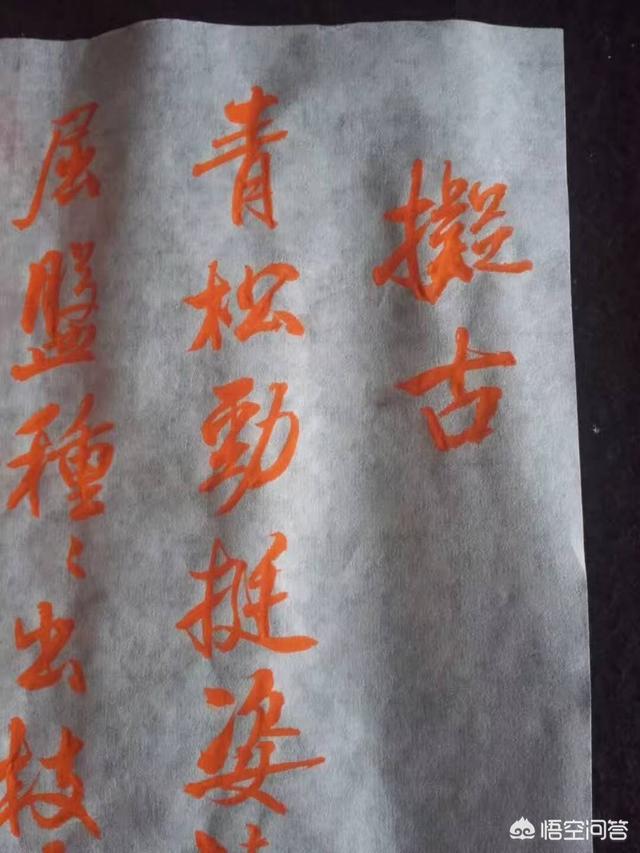 擬古
青松勁挺姿
屈盤種〻出枝
悟空问答